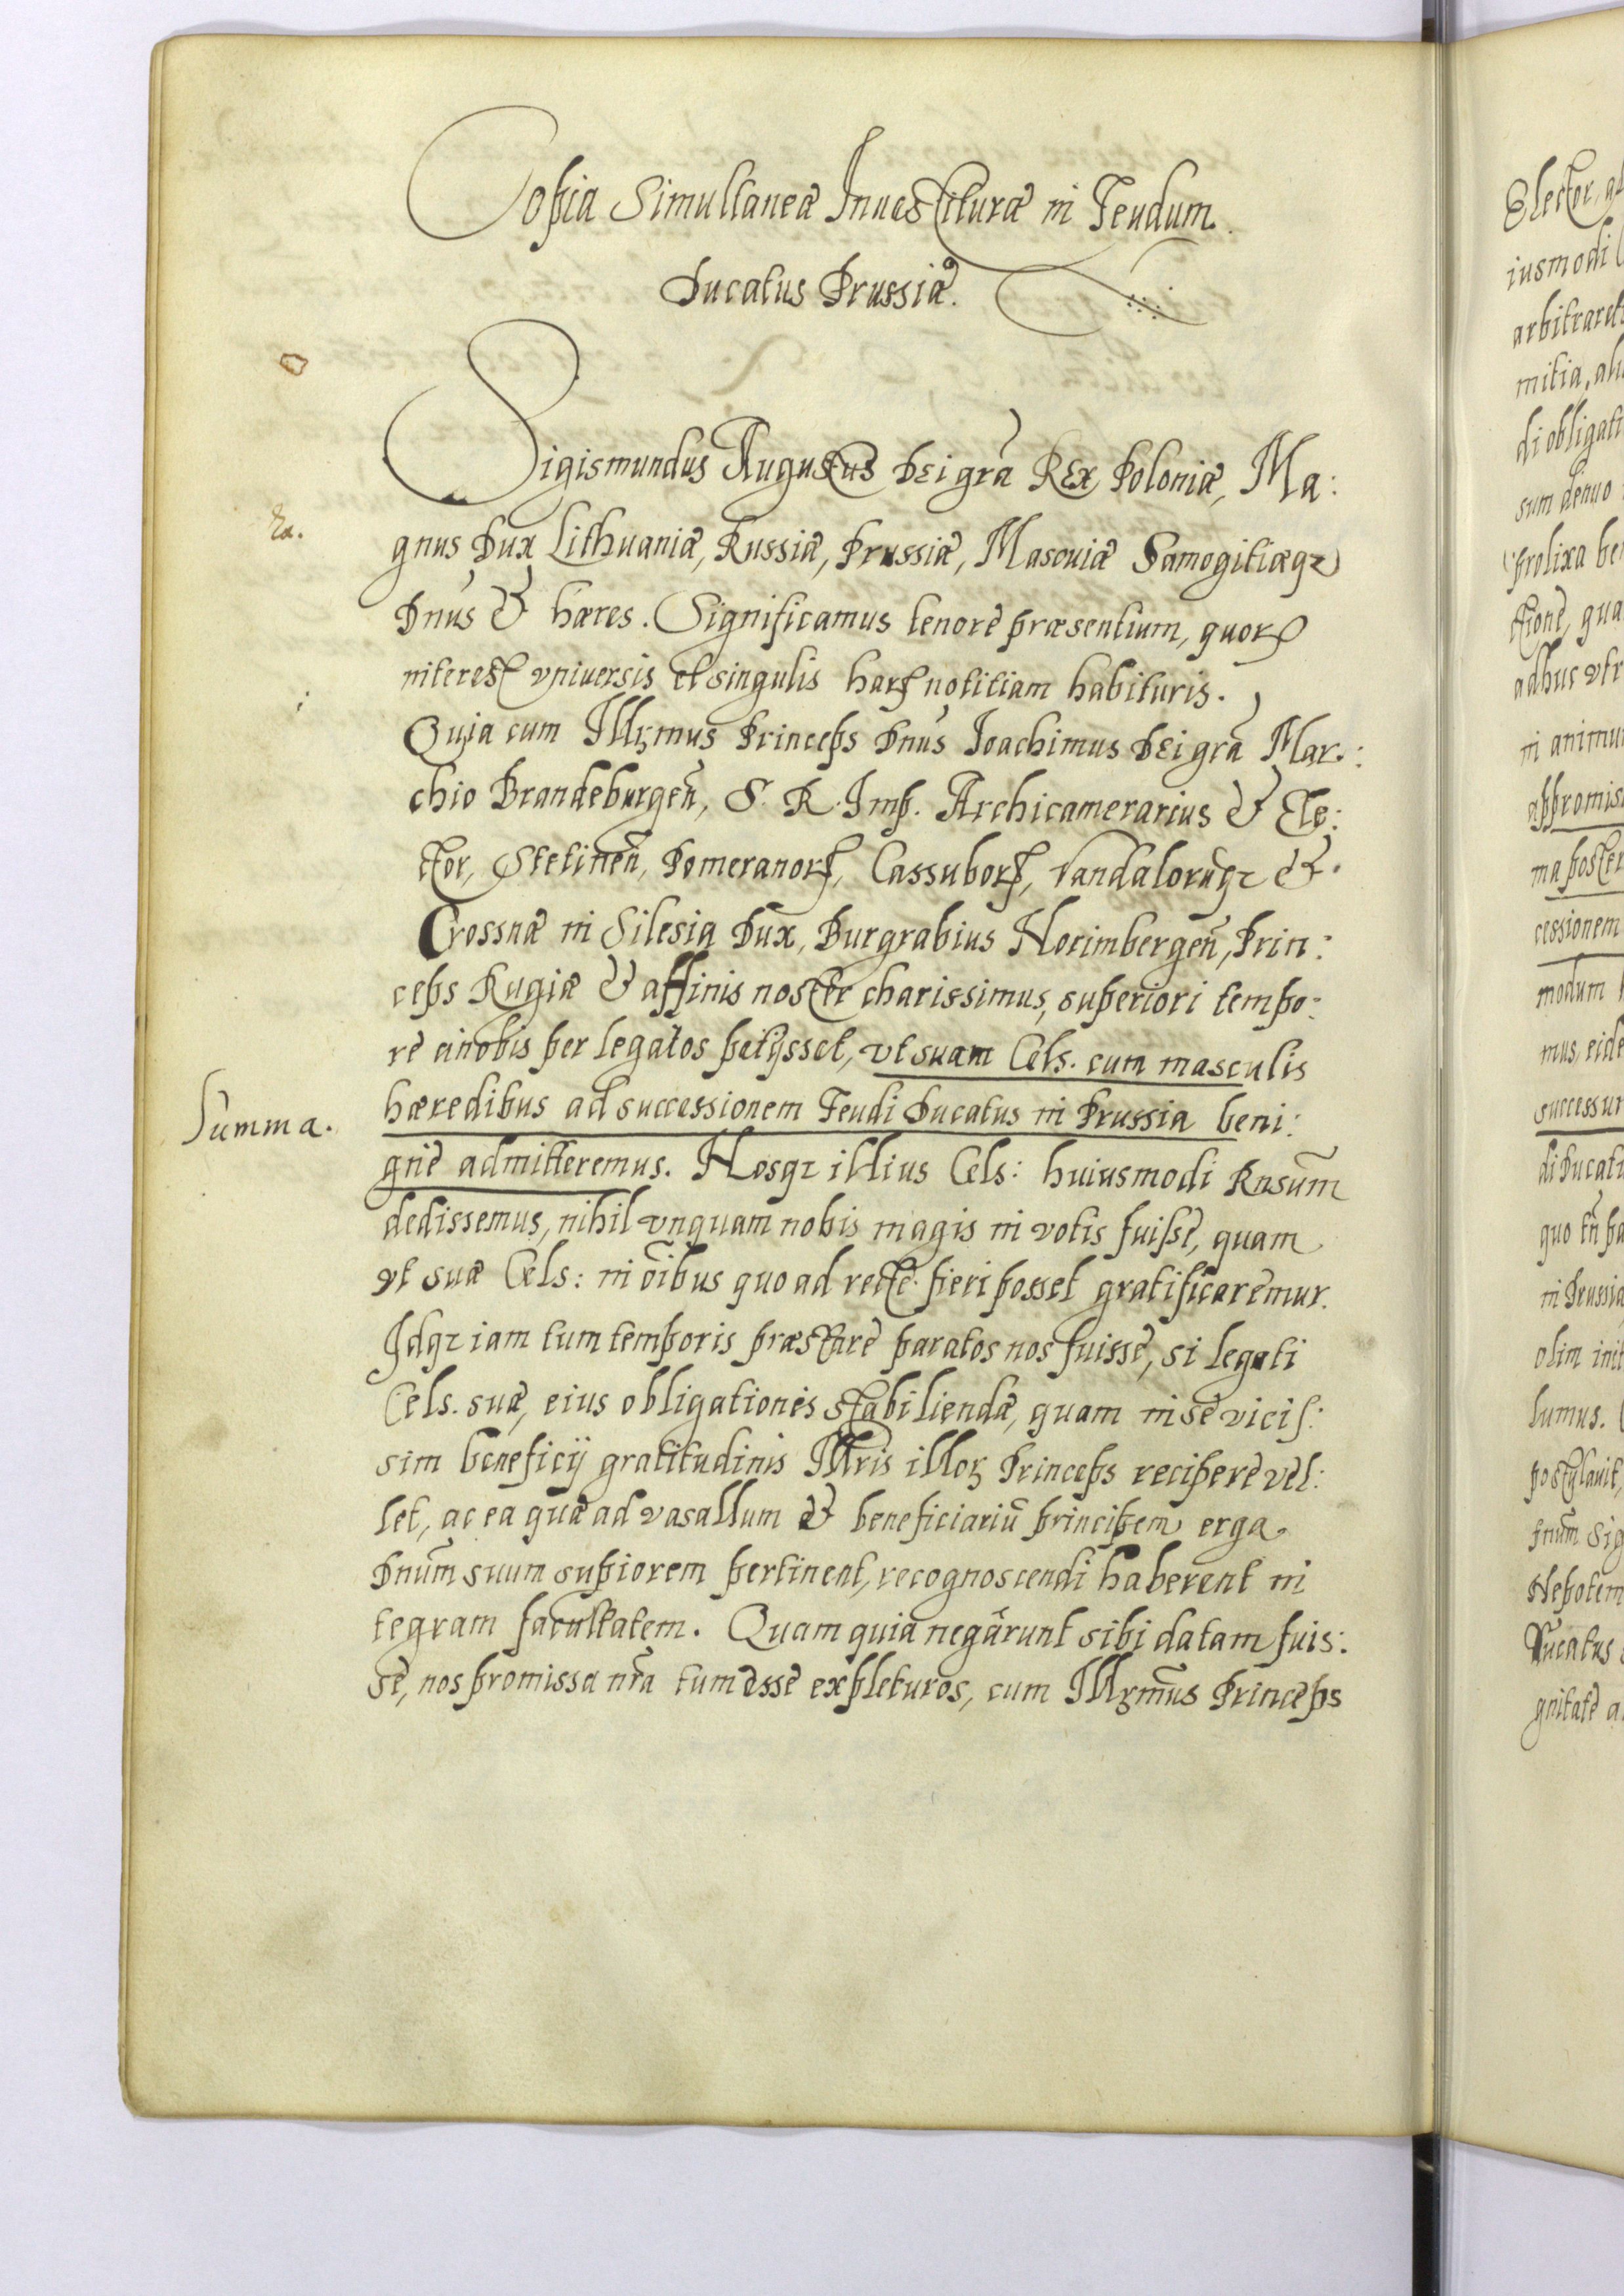 Copia Simultaneæ Inuestituræ in Feudum
Ducatus Prussiæ.
Sigismundus Augustus DEi grã REx Poloniæ, Ma:
gnus Dux Lithuaniæ, Russiæ, Prussiæ, Masouiæ Samogitiæqz
Dnus & hæres. Significamus tenore præsentium, quorꝝ
interest vniuersis et singulis harꝝ notitiam habituris.
Quia cum Illꝛmus Princeps Dnus Ioachimus DEi grã Mar:
chio Brandeburgeñ, S. R. Imp. Archicamerarius & Ele:
ctor, Stetineñ, Pomeranorꝝ, Cassuborꝝ, Vandalorũqz &
Crossnæ in Silesia Dux, Burgrabius Norimbergeñ, Prin:
ceps Rugiæ & affinis noster charissimus, superiori tempo:
re a nobis per legatos petijsset, vt suam Cels. cum masculis
Summa.
hæredibus ad successionem Feudi Ducatus in Prussia beni:
gnè admitteremus. Nosqz illius Cels: huiusmodi Rnsũm
dedissemus, nihil vnquam nobis magis in votis fuisse, quam
vt suæ Cels: in õibus quo ad recte fieri posset gratificaremur.
Idqz iam tum temporis præstare paratos nos fuisse, si legati
Cels. suæ, eius obligationis stabiliendæ, quam in se vicis:
sim beneficij gratitudinis Illris illoꝝ Princeps recipere vel:
let, ac ea quæ ad vasallum & beneficiariũ principem erga
Dnũm suum supiorem pertinent, recognoscendi haberent in
tegram facultatem. Quam quia negârunt sibi datam fuis:
se, nos promissa nr̃a tum esse expleturos, cum Illꝛmus Princeps
Elector,
iusmodi
mitia,
di obligati
sum denuo
prolixa
in animu
cessionem
modum
mus, eide
successur
di Ducatu
in Prussia
olim init
lumus.
postulauit,
Nepotem
Ducatus
gnitate